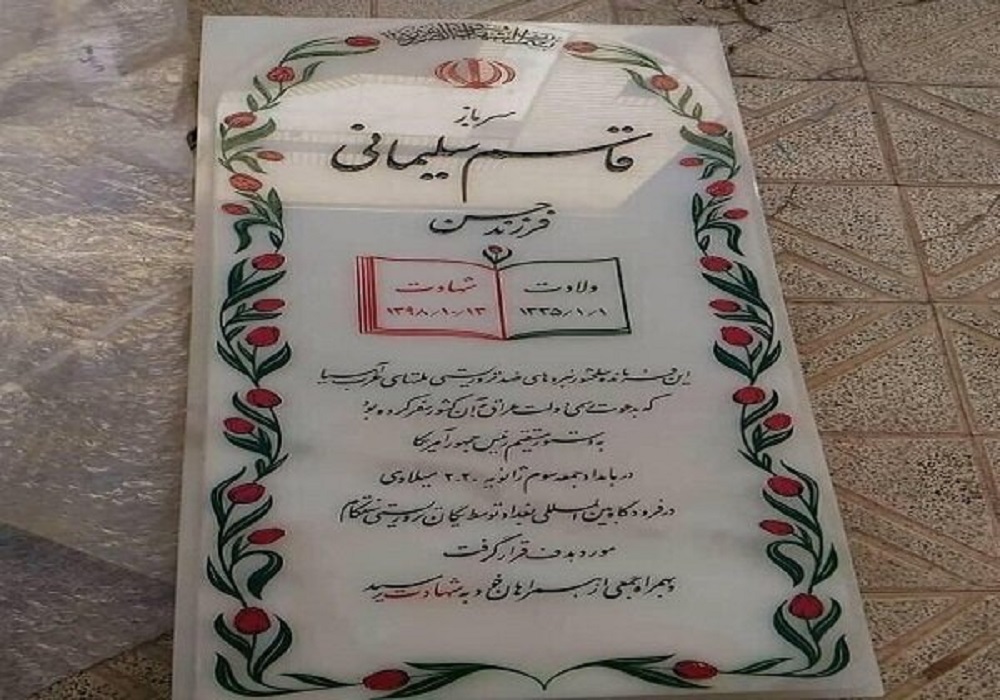 سرباز
قاسم سلیمانی
فرزند حسن
ولادت
۱۳۳۵/۱/۱
شهادت
۱۳۹۸/۱۰/۱۳
این فرمانده دلاور نیروهای ضد تروریستی ملتهای غرب آسیا
که به دعوت رسمی دولت عراق به آن کشور سفر کرده بود
به دستور مستقیم رئیس جمهور آمریکا
در بامداد جمعه سوم ژانویه ۲۰۲۰ میلادی
در فرودگاه بین المللی بغداد توسط یگان تروریستی
مورد هدف قرار گرفت
و بهمراه جمعی از همراهان خود به شهادت رسید